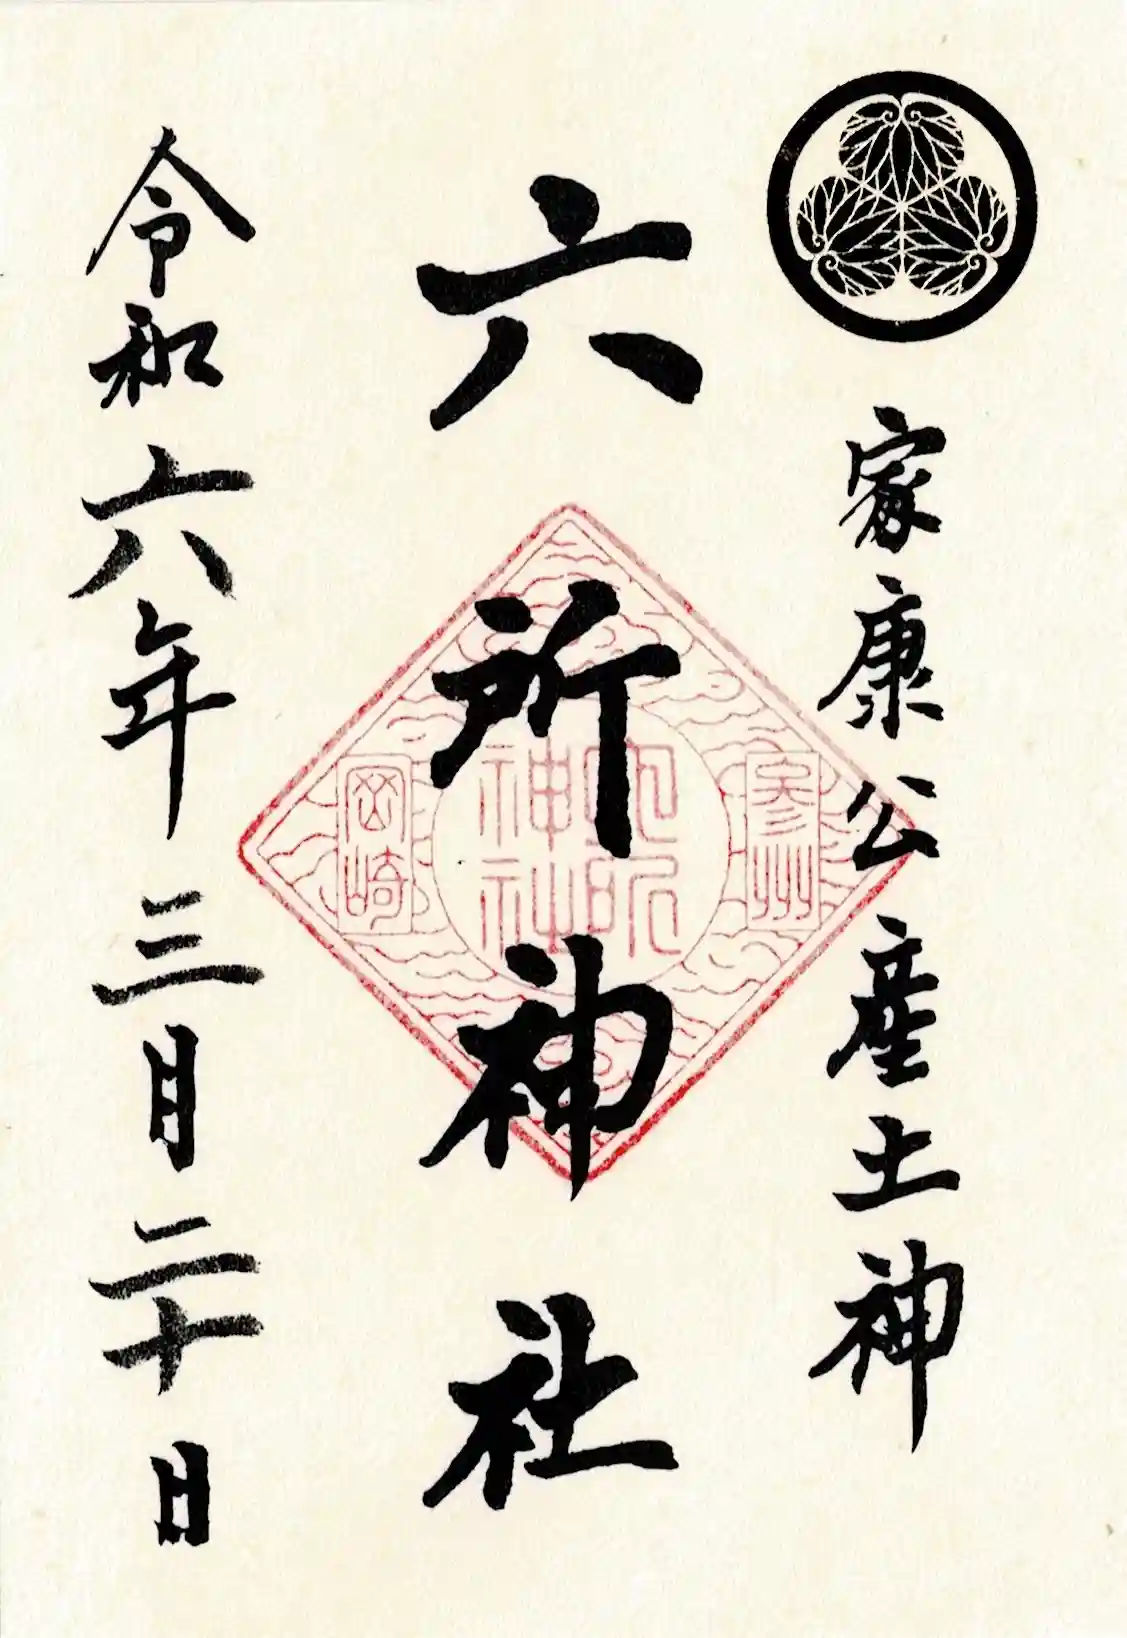 家康公産土神
六所神社
参州
六所
神社
岡崎
令和六年三月二十日